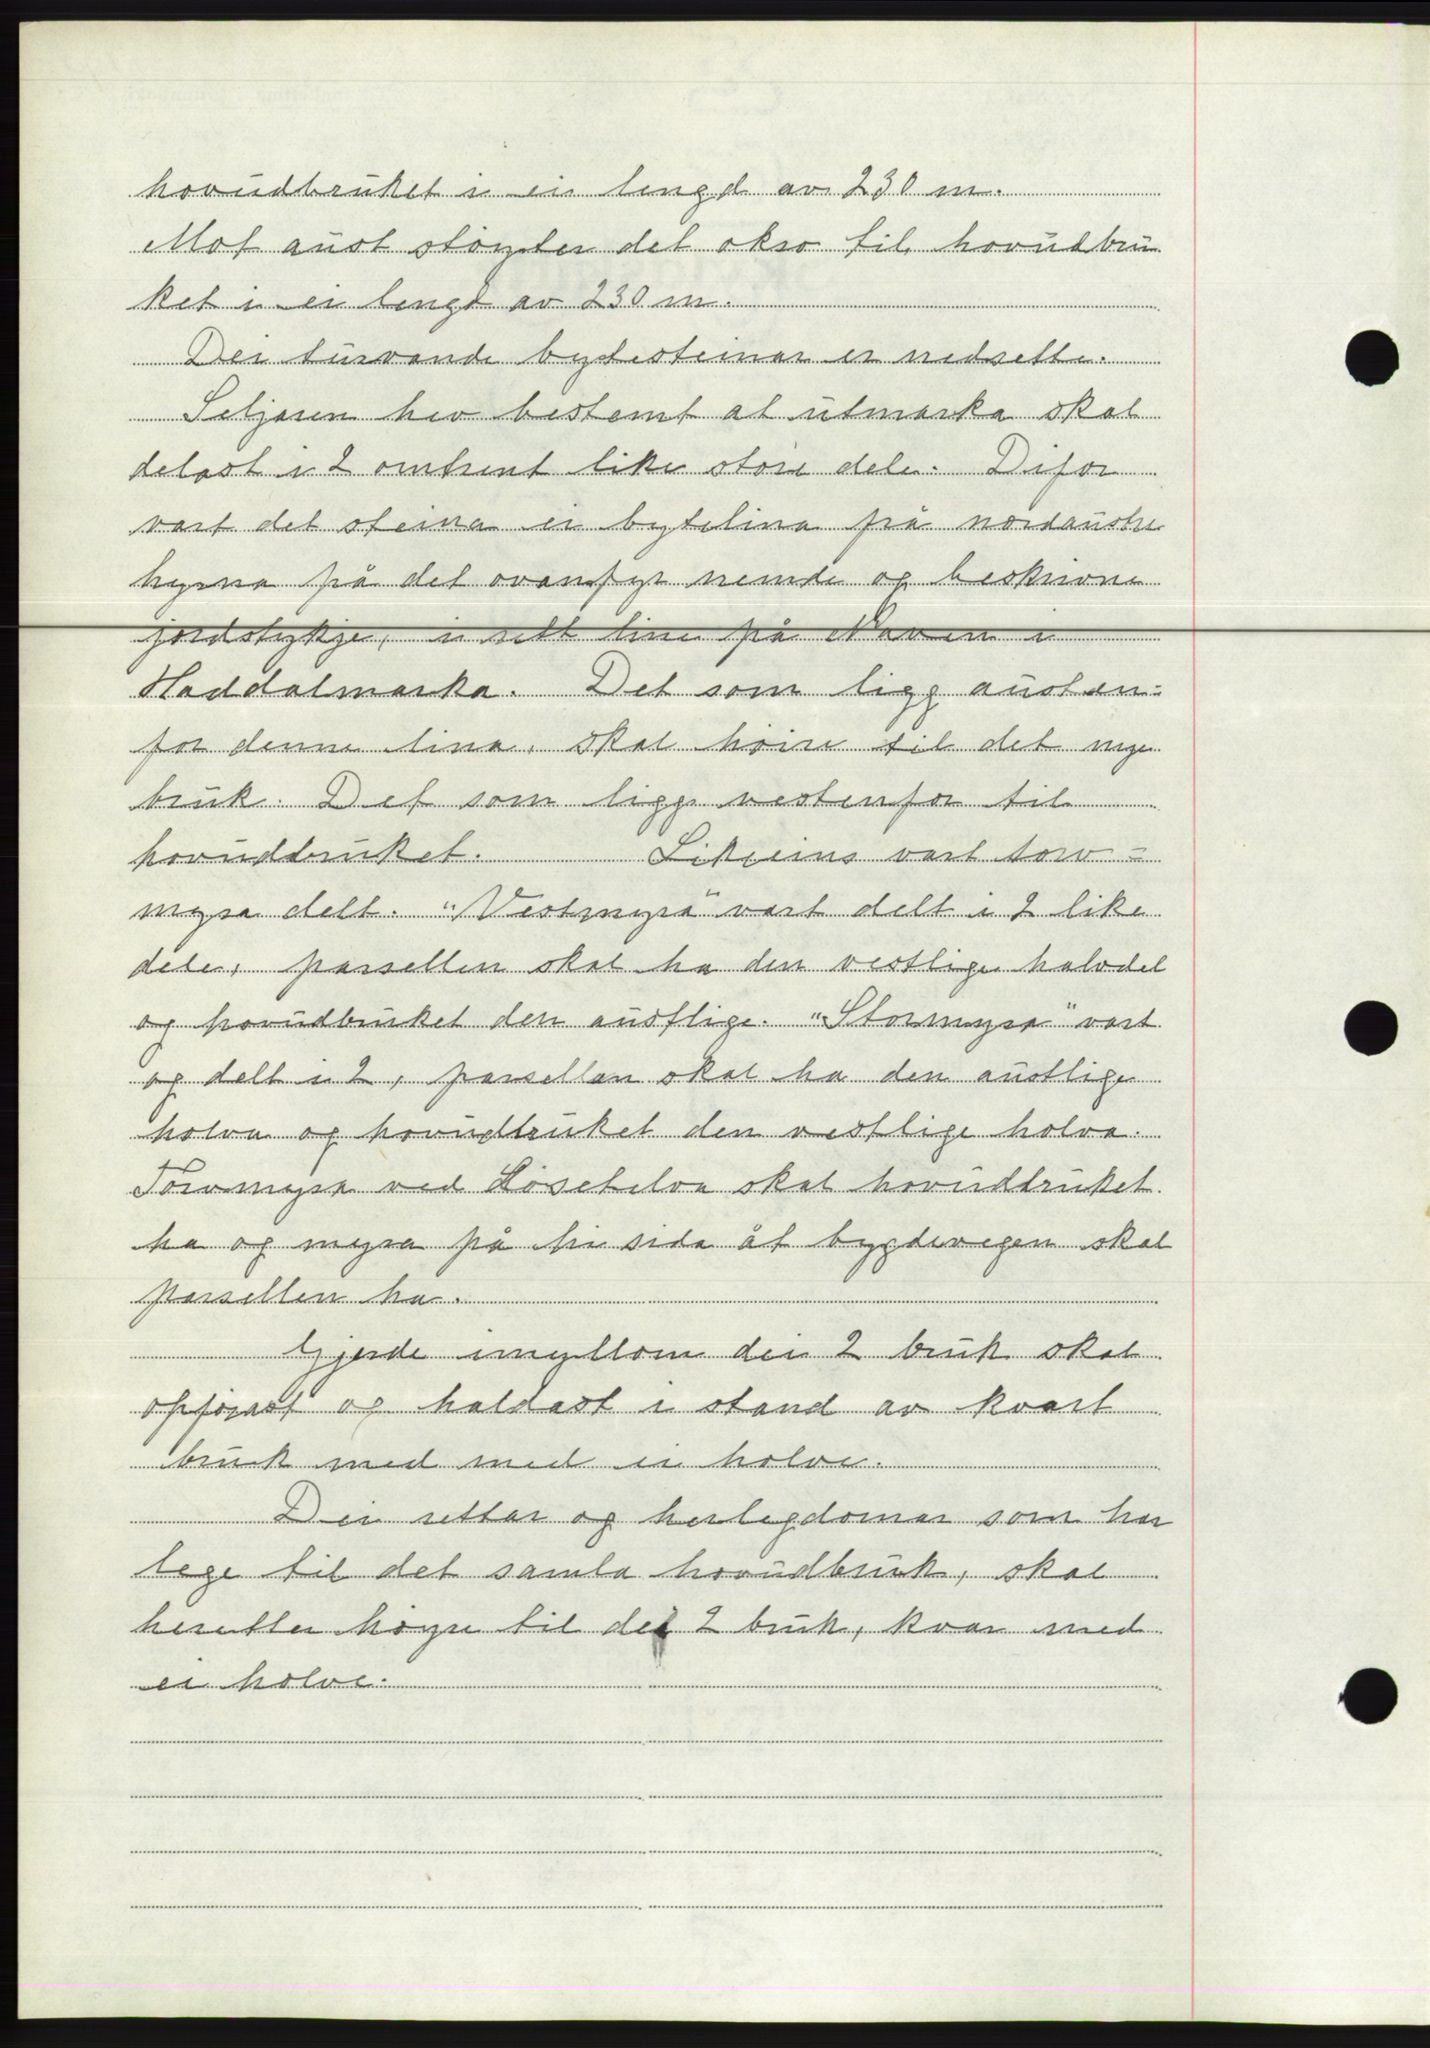 hovudbruket i ei lengd av 230 m.
Mot aust støyter det okso til hovudbru
ket i ei lengd av 230 m.
Dei turvande bytesteinar er nedsette.
Seljaren hev bestemt at utmarka skal
delast i 2 omtrent like store dele. Difor
vart det steina ei bytelina frå nordaustre
hyrna på det ovanfyr nemde og beskrivne
jordstykje, i rett line på Naven i
Haddalmarka. Det som ligg austen=
for denne lina, skal höire til det nye
bruk. Det som ligg vestenfor til
hovudbruket. Likeeins vart torv=
myra delt. "Vestmyra" vart delt i 2 like
dele, parsellen skal ha den vestlige halvdel
og hovudbruket den austlige. "Stormyra" vart
og delt i 2, parsellen skal ha den austlige
holva og hovudbruket den vestlige holva.
Torvmyra ved Løsetelva skal hovudbruket
ha og myra på hi sida åt bygdevegen skal
parsellen ha.
Gjerde imyllom dei 2 bruk skal
oppførast og haldast i stand av kvart
bruk med med ei holve.
Dei rettar og herlegdomar som har
lege til det samla hovudbruk, skal
heretter høyre til dei 2 bruk, kvar med
ei holve.